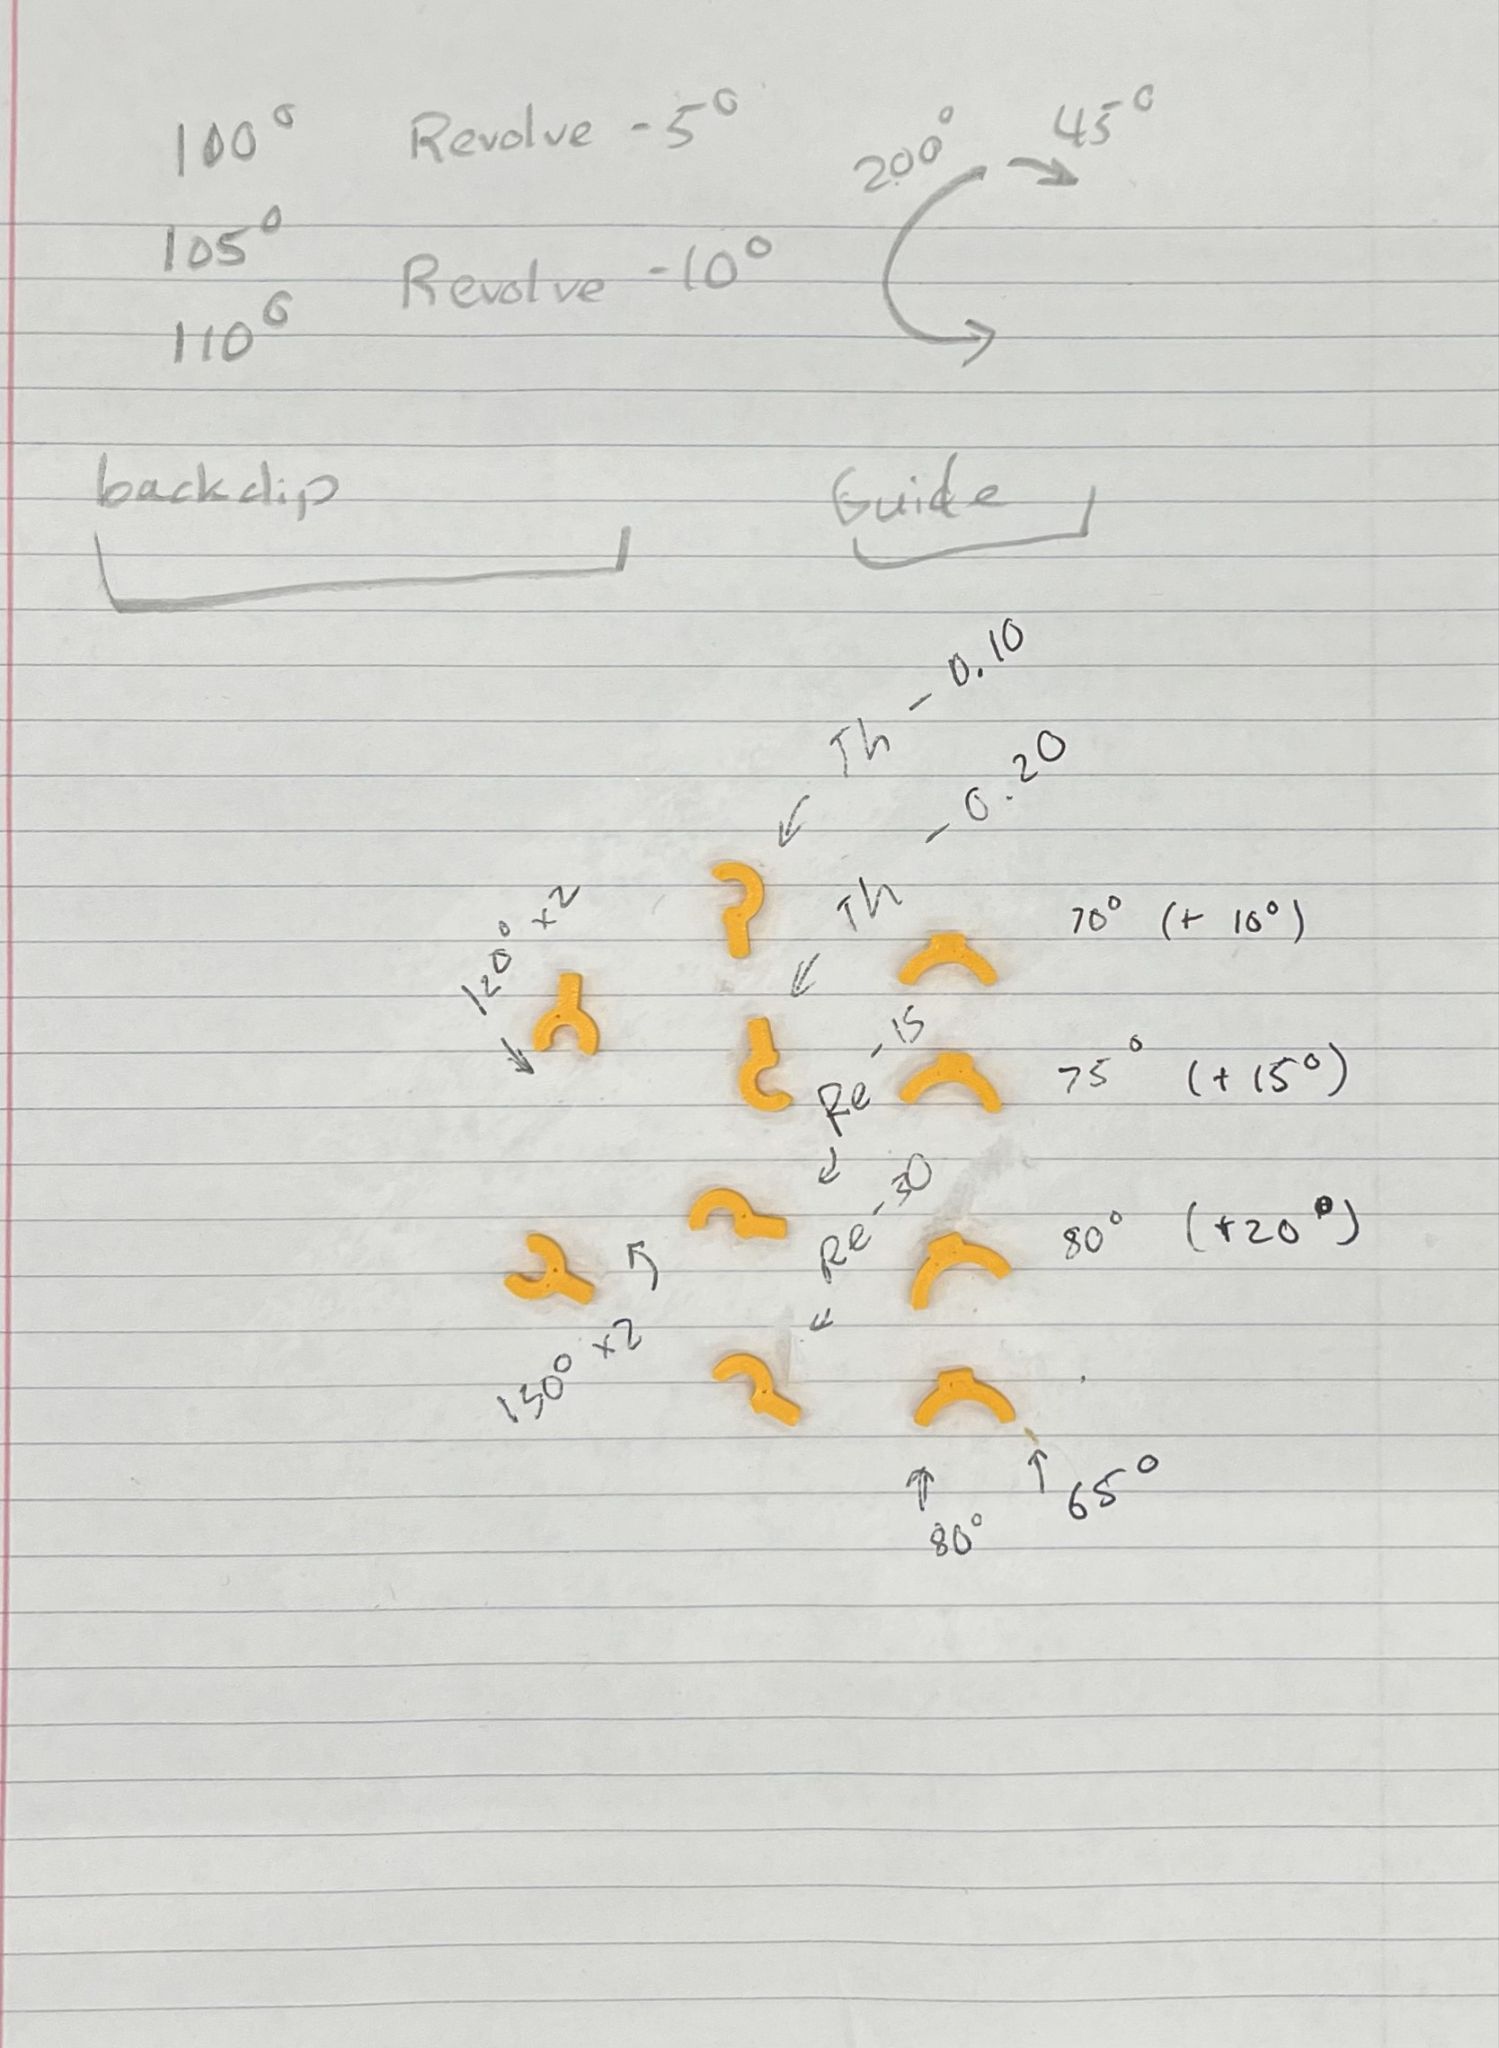 100° Revolve -5° 200° 45°
105° Revolve -10°
110°
backclip Guide
Th -0.10
Th -0.20
120° x2
70° (+ 10°)
Re -15
75° (+ 15°)
Re -30
80° (+20°)
150° x2
80° 65°